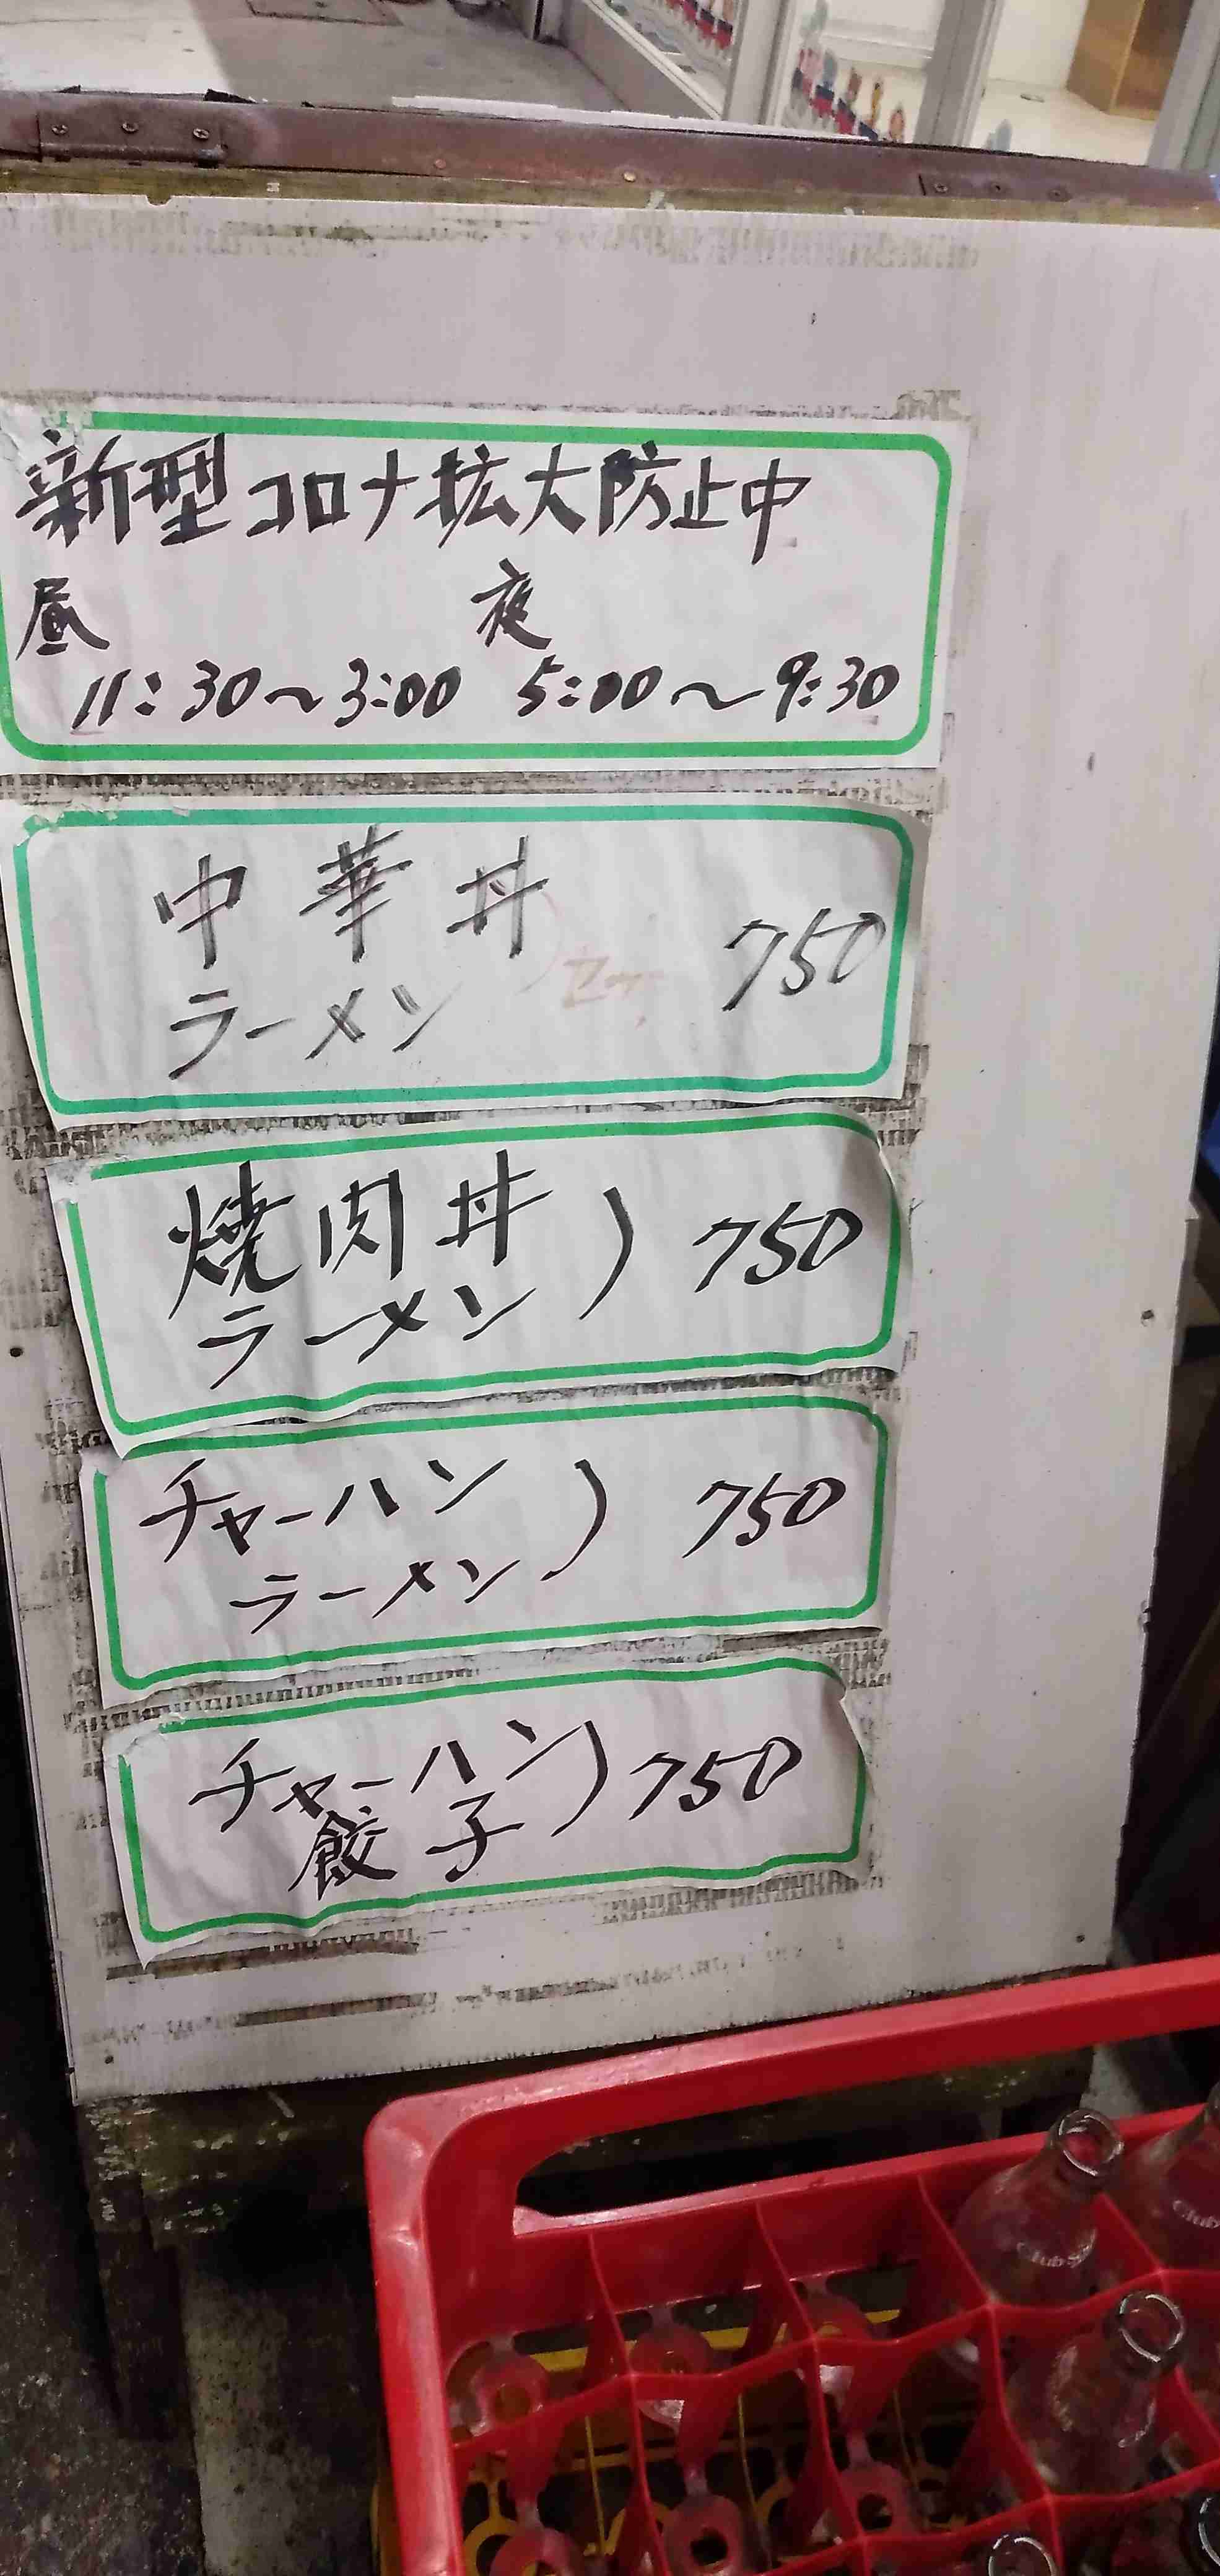 新型コロナ拡大防止中
昼 夜
11:30〜3:00 5:00〜9:30
中華丼
ラーメン
750
焼肉丼
ラーメン
) 750
チャーハン
ラーメン
) 750
チャーハン
餃子
) 750
Club
Club